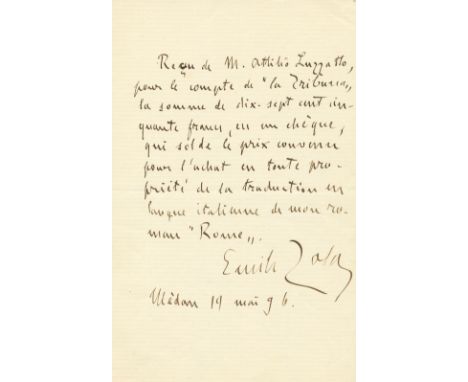 Reçu de M. Attilio Luzzatto,
pour le compte de "la Tribuna„
la somme de dix-sept cent cin-
quante francs, en un chèque,
qui solde le prix convenu
pour l'achat en toute pro-
priété de la traduction en
langue italienne de mon ro-
man "Rome„.
Emile Zola
Médan 19 mai 96.